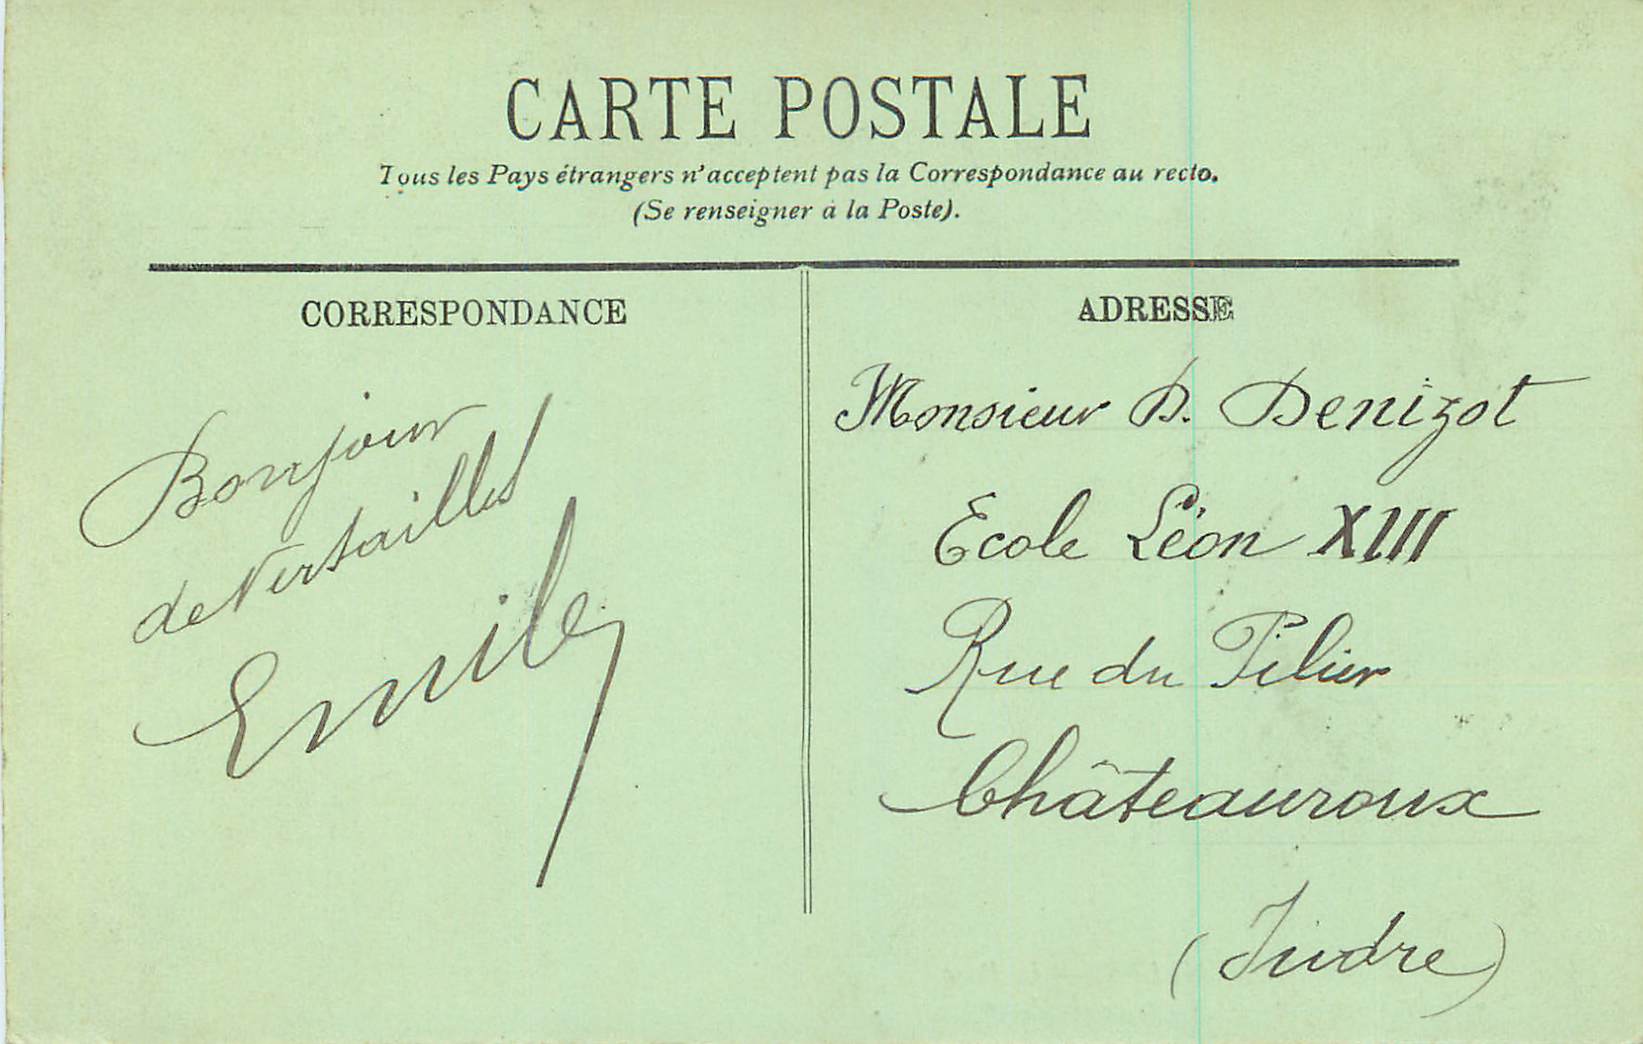 CARTE POSTALE
Tous les Pays étrangers n'acceptent pas la Correspondance au recto.
(Se renseigner à la Poste).
CORRESPONDANCE
Bonjour
de Versailles
Emile
ADRESSE
Monsieur D. Denizot
Ecole Léon XIII
Rue du Pilier
Châteauroux
(Indre)